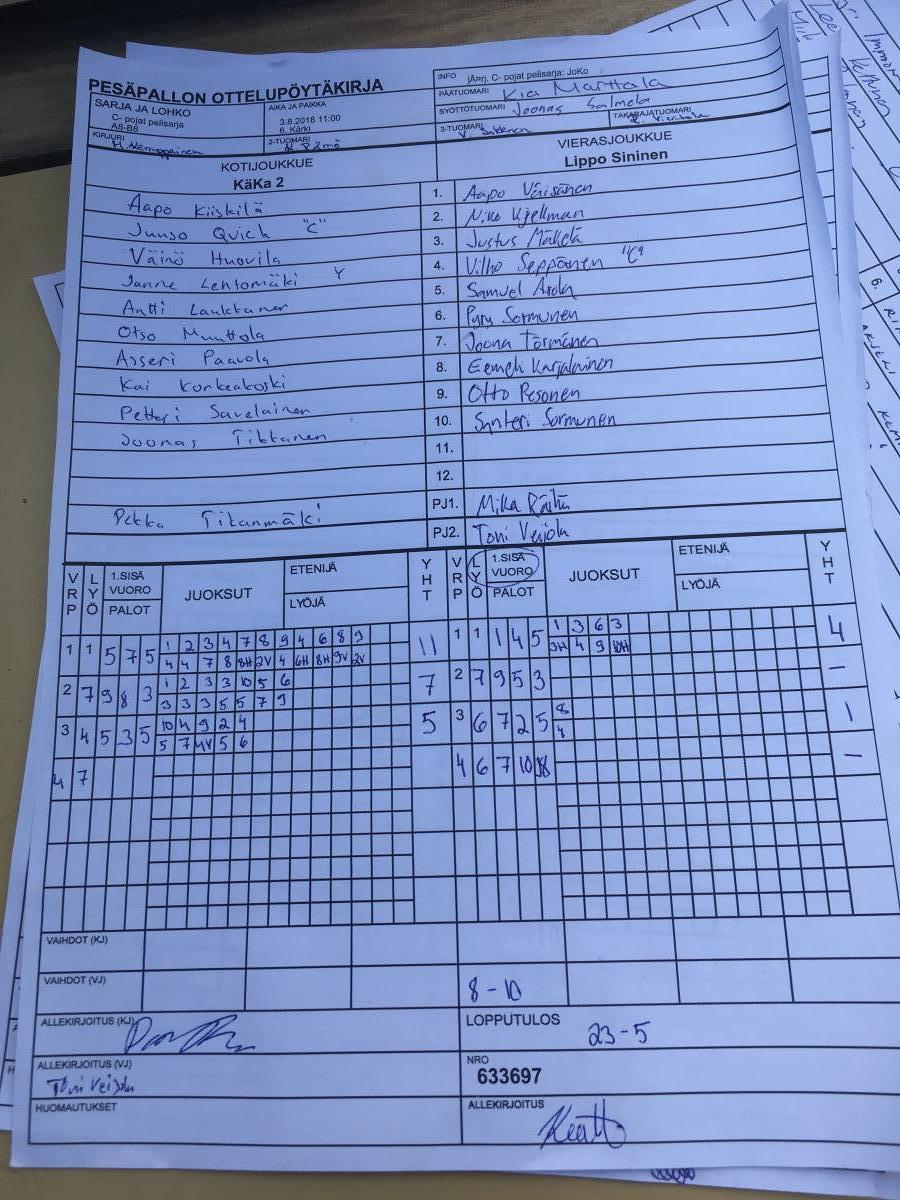 PESÄPALLON OTTELUPÖYTÄKIRJA
INFO jÄrrj. C- pojat pelisarja: JoKo
PÄÄTUOMARI Kia Marttala
SARJA JA LOHKO
C- pojat pelisarja
A8-B8
AIKA JA PAIKKA
3.8.2018 11:00
6. Kärki
SYÖTTÖTUOMARI Joonas Salmela
TAKARAJATUOMARI
KIRJURI
2-TUOMARI
3-TUOMARI
KOTIJOUKKUE
KäKa 2
VIERASJOUKKUE
Lippo Sininen
Aapo Kiiskilä 1. Aapo Väisänen
Juuso Quick "C" 2. Niko Kjellman
Väinö Huovila 3. Justus Mäkelä
Janne Lehtomäki Y 4. Vilho Seppänen "C"
Antti Laukkanen 5. Samuel Arola
Otso Muuttola 6. Pyry Sormunen
Asseri Paavola 7. Joona Törmänen
Kai Korkeakoski 8. Eemeli Karjalainen
Petteri Savelainen 9. Otto Pesonen
Joonas Tikkanen 10. Santeri Sormunen
11.
12.
Pekka Tikanmäki PJ1. Mika Räihä
PJ2. Toni Veijola
VRP LYÖ 1.SISÄ VUORO PALOT JUOKSUT ETENIJÄ LYÖJÄ YHT
VRP LYÖ 1.SISÄ VUORO PALOT JUOKSUT ETENIJÄ LYÖJÄ YHT
1 1 5 7 5 1 2 3 4 7 8 9 4 6 8 9 11
4 4 7 8 8H 2V 4 6H 8H 9V 2V
1 1 1 4 5 1 3 6 3 4
3H 4 9 10H
2 7 9 8 3 1 2 3 3 10 5 6 7
3 3 3 5 5 7 9
2 7 9 5 3 –
3 4 5 3 5 10 4 9 2 4 5
5 7 4V 5 6
3 6 7 2 5 8 1
4
4 7
4 6 7 10 –
VAIHDOT (KJ)
VAIHDOT (VJ) 8-10
ALLEKIRJOITUS (KJ)
LOPPUTULOS 23-5
ALLEKIRJOITUS (VJ) Toni Veijola
NRO
633697
HUOMAUTUKSET
ALLEKIRJOITUS